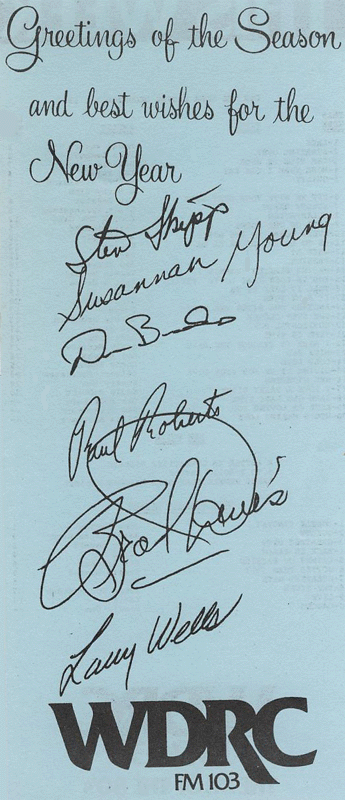 Greetings of the Season
and best wishes for the
New Year
Steve
Susannah Young
Paul Roberts
Brad Davis
Larry Wells
WDRC
FM 103